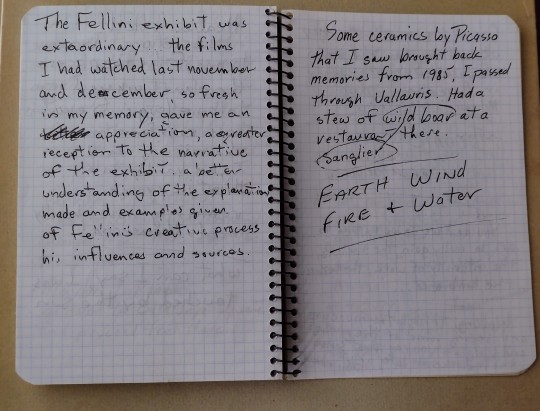 The Fellini exhibit was
extaordinary the films
I had watched last november
and december, so fresh
in my memory, gave me an
appreciation, a greater
reception to the narrative
of the exhibit. a better
understanding of the explanation
made and examples given
of Fellini's creative process
his influences and sources.
Some ceramics by Picasso
that I saw brought back
memories from 1985, I passed
through Vallauris. Had a
stew of wild boar at a
restaurant there.
Sanglier
EARTH WIND
FIRE + Water